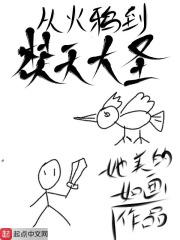 从火鸦到
焚天大圣
她美的
如画
作品
起点中文网